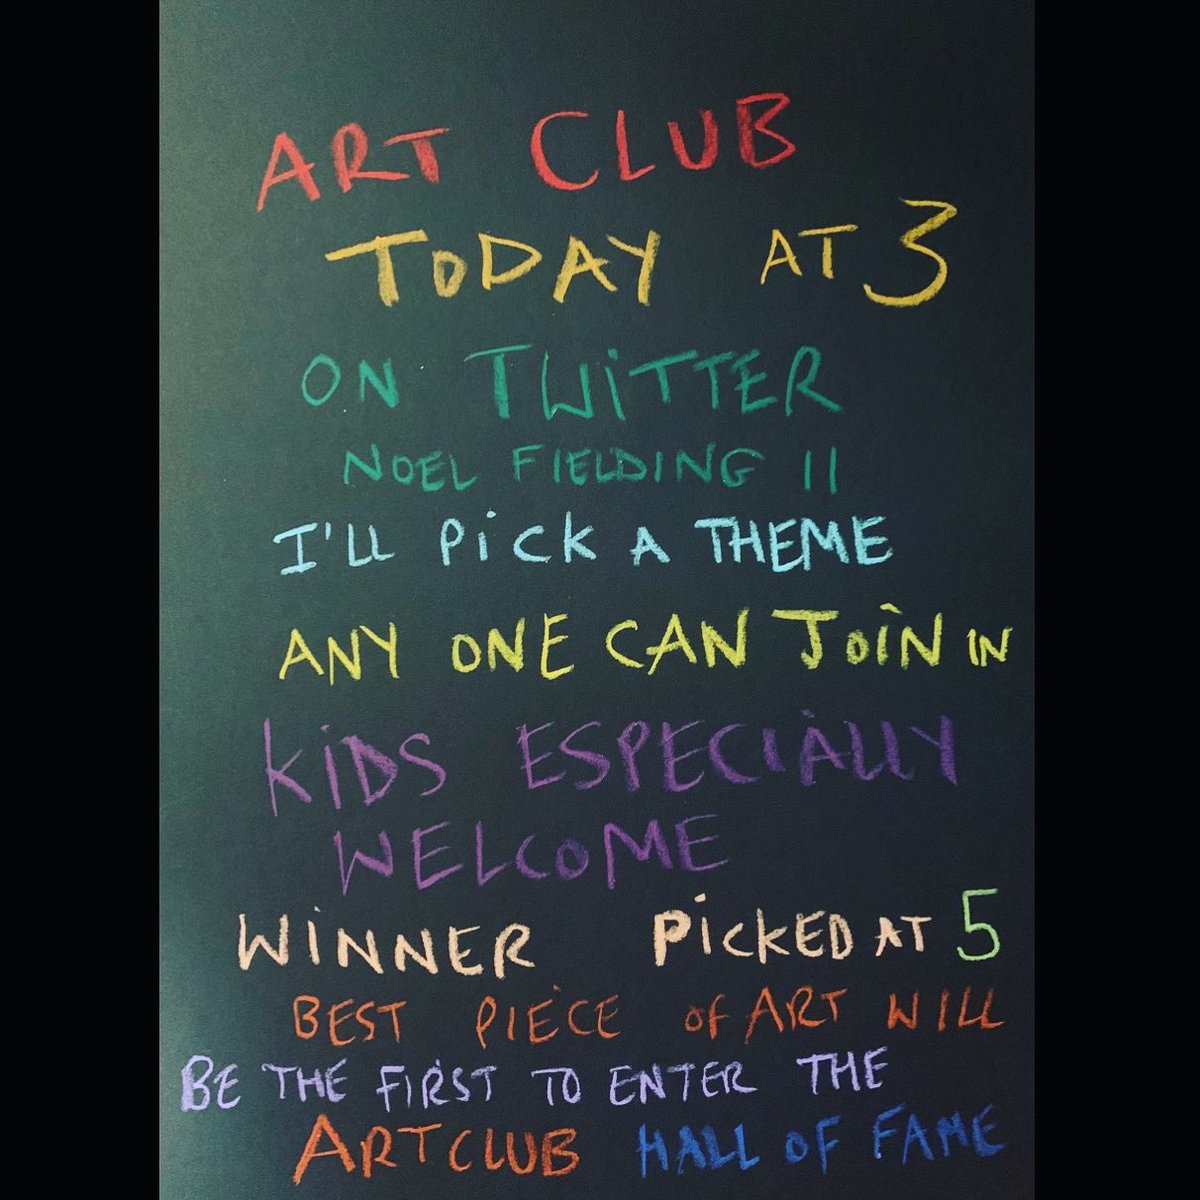 ART CLUB
TODAY AT 3
ON TWiTTER
NOEL FIELDING 11
I'LL PiCK A THEME
ANY ONE CAN JOiN IN
KiDS ESPECiALLY
WELCOME
WiNNER PiCKED AT 5
BEST PiECE OF ART WILL
BE THE FiRST TO ENTER THE
ARTCLUB HALL OF FAME